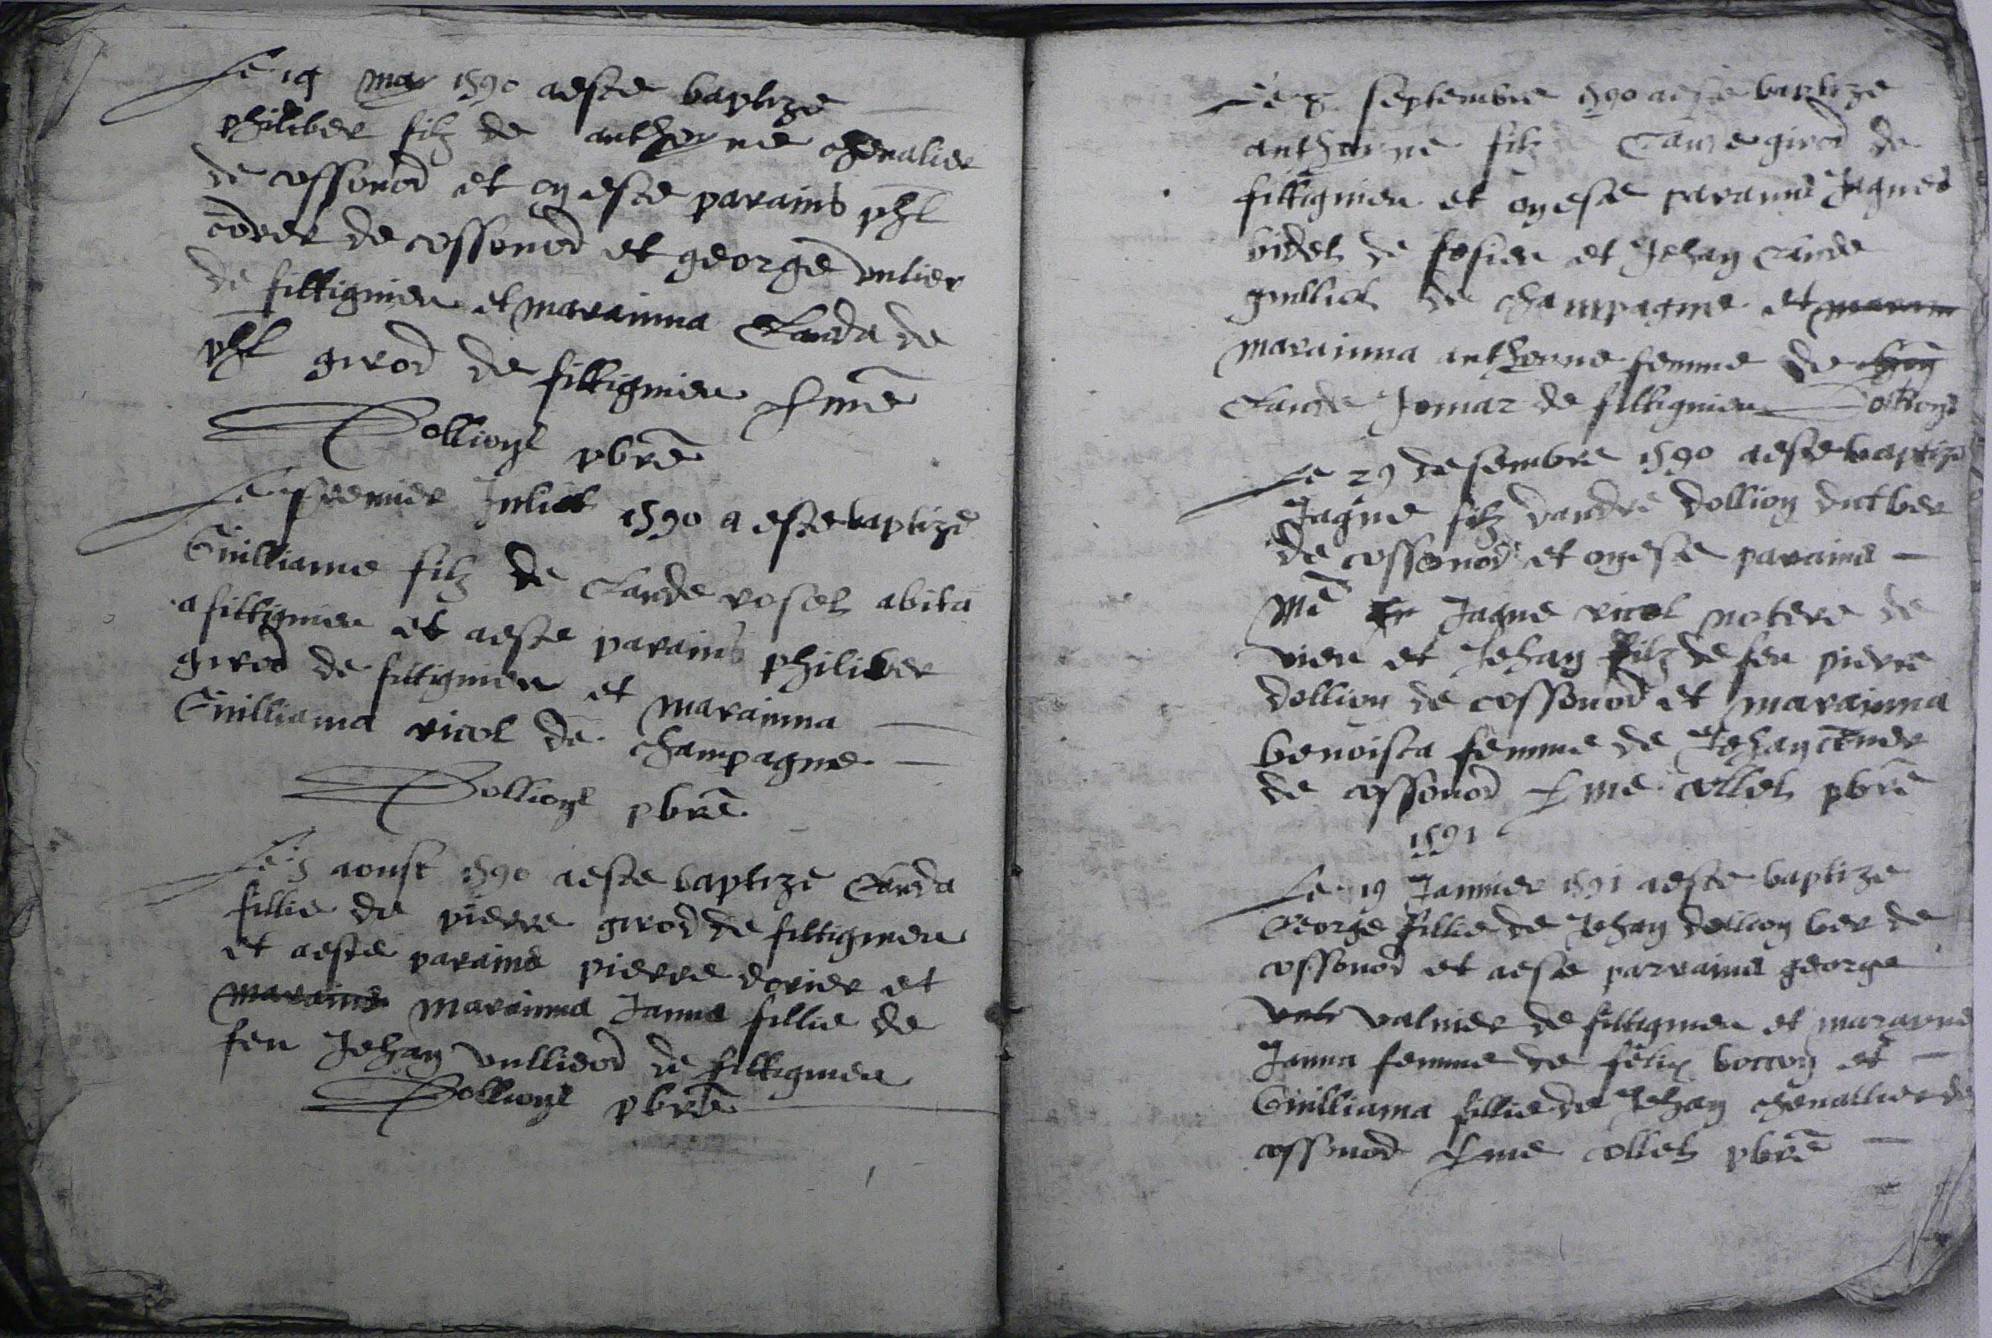 Le 19 may 1590 a este baptize
philiber filz de anthoyne chevalier
de cossonod et on este parains phl
de cossonod et george vulier
de fittignieu et marainna Clauda de
phl girod de fittignieu
Dollion pbre
Le premier Juliet 1590 a este baptize
Guilliame filz de Claude rosel abita
a fittignieu et a este parains philiber
girod de fittignieu et marainna
Guilliama ricol de champagne
Dollion pbre
Le 5 aoust 1590 a este baptize Clauda
fillie de pierre girod de fittignieu
et a este parains pierre dorier et
marains marainna Janna fillie de
feu Jehan vulliod de fittignieu
Dollion pbre
Le 8 septembre 1590 a este baptize
anthoyne filz Claude girod de
fittignieu et on este parains Jaques
bidel de et Jehan Claude
gulliet de champagne et marain
marainna anthoyne femme de
Claude Jomar de fittignieu Dollion
Le 29 desembre 1590 a este baptize
Jaque filz dandre dollion dict ber
de cossonod et on este parains
Me Jaque ricol notere de
vieu et Jehan filz de feu pierre
dollion de cossonod et marainna
benoista femme de Jehan
de cossonod collet pbre
1591
Le 19 Janvier 1591 a este baptize
George fillie de Jehan dollion ber de
cossonod et a este parrains george
vulier de fittignieu et marayna
Janna femme de felix bocon et
Guilliama fillie de Jehan chevallier de
cossonod collet pbre